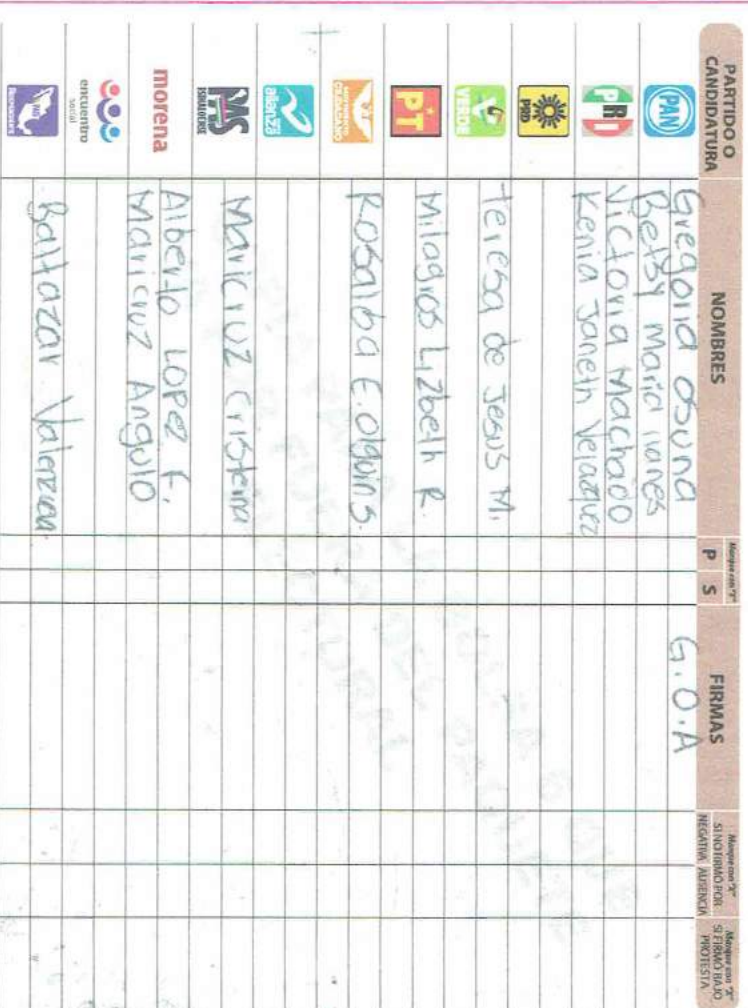 PARTIDO O CANDIDATURA
NOMBRES
Marque con "X"
P S
FIRMAS
Marque con "X" SI NO FIRMÓ POR
NEGATIVA AUSENCIA
Marque con "X" SI FIRMÓ BAJO PROTESTA
PAN
Gregoria Osuna
G.O.A
Betsy Maria
PRI
Victoria Machado
Kenia Janeth Velazquez
PRD
VERDE
Teresa de Jesus M.
PT
Milagros Lizbeth R.
MOVIMIENTO CIUDADANO
Rosalba E. Olguin S.
alianza
PAS
SINALOENSE
Maricruz Cristeina
morena
Alberto Lopez F.
Maricruz Angulo
encuentro social
PAIS
Baltazar Valenzuela